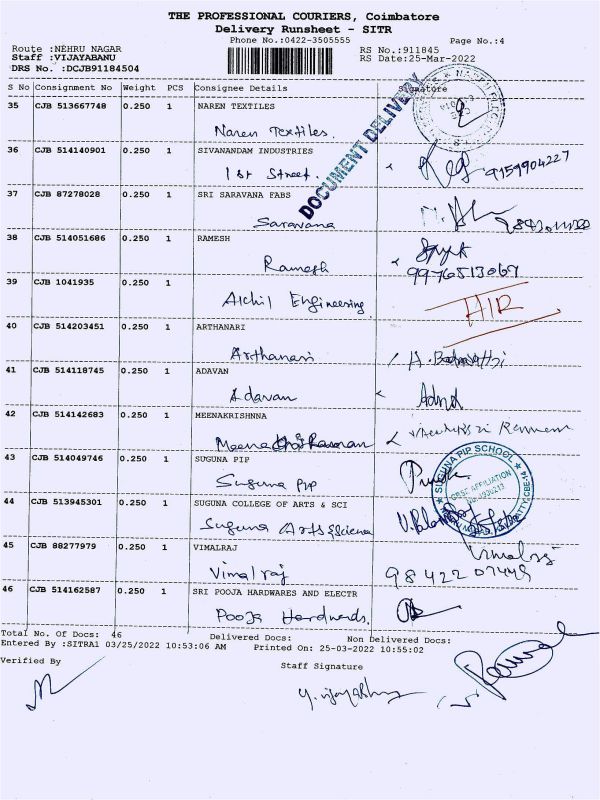 THE PROFESSIONAL COURIERS, Coimbatore
Delivery Runsheet - SITR
Phone No.:0422-3505555
Page No.:4
Route :NEHRU NAGAR
RS No.:911845
Staff :VIJAYABANU
RS Date:25-Mar-2022
DRS No. :DCJB91184504
S No Consignment No Weight PCS Consignee Details Signature
35 CJB 513667748 0.250 1 NAREN TEXTILES
Naren Textiles.
DOCUMENT DELIVERY
36 CJB 514140901 0.250 1 SIVANANDAM INDUSTRIES
1st Street. 9159904227
37 CJB 87278028 0.250 1 SRI SARAVANA FABS
Saravana
38 CJB 514051686 0.250 1 RAMESH
Ramesh 9976513067
39 CJB 1041935 0.250 1
Engineering
40 CJB 514203451 0.250 1 ARTHANARI
Arthanari
41 CJB 514118745 0.250 1 ADAVAN
Adavan
42 CJB 514142683 0.250 1 MEENAKRISHNNA
43 CJB 514049746 0.250 1 SUGUNA PIP
Suguna PIP
SUGUNA PIP SCHOOL
CBSE AFFILIATION
44 CJB 513945301 0.250 1 SUGUNA COLLEGE OF ARTS & SCI
Suguna Arts & Science
45 CJB 88277979 0.250 1 VIMALRAJ
Vimalraj Vimalraj
98422 07449
46 CJB 514162587 0.250 1 SRI POOJA HARDWARES AND ELECTR
Pooja Hardwards.
Total No. Of Docs: 46 Delivered Docs: Non Delivered Docs:
Entered By :SITRA1 03/25/2022 10:53:06 AM Printed On: 25-03-2022 10:55:02
Verified By
Staff Signature